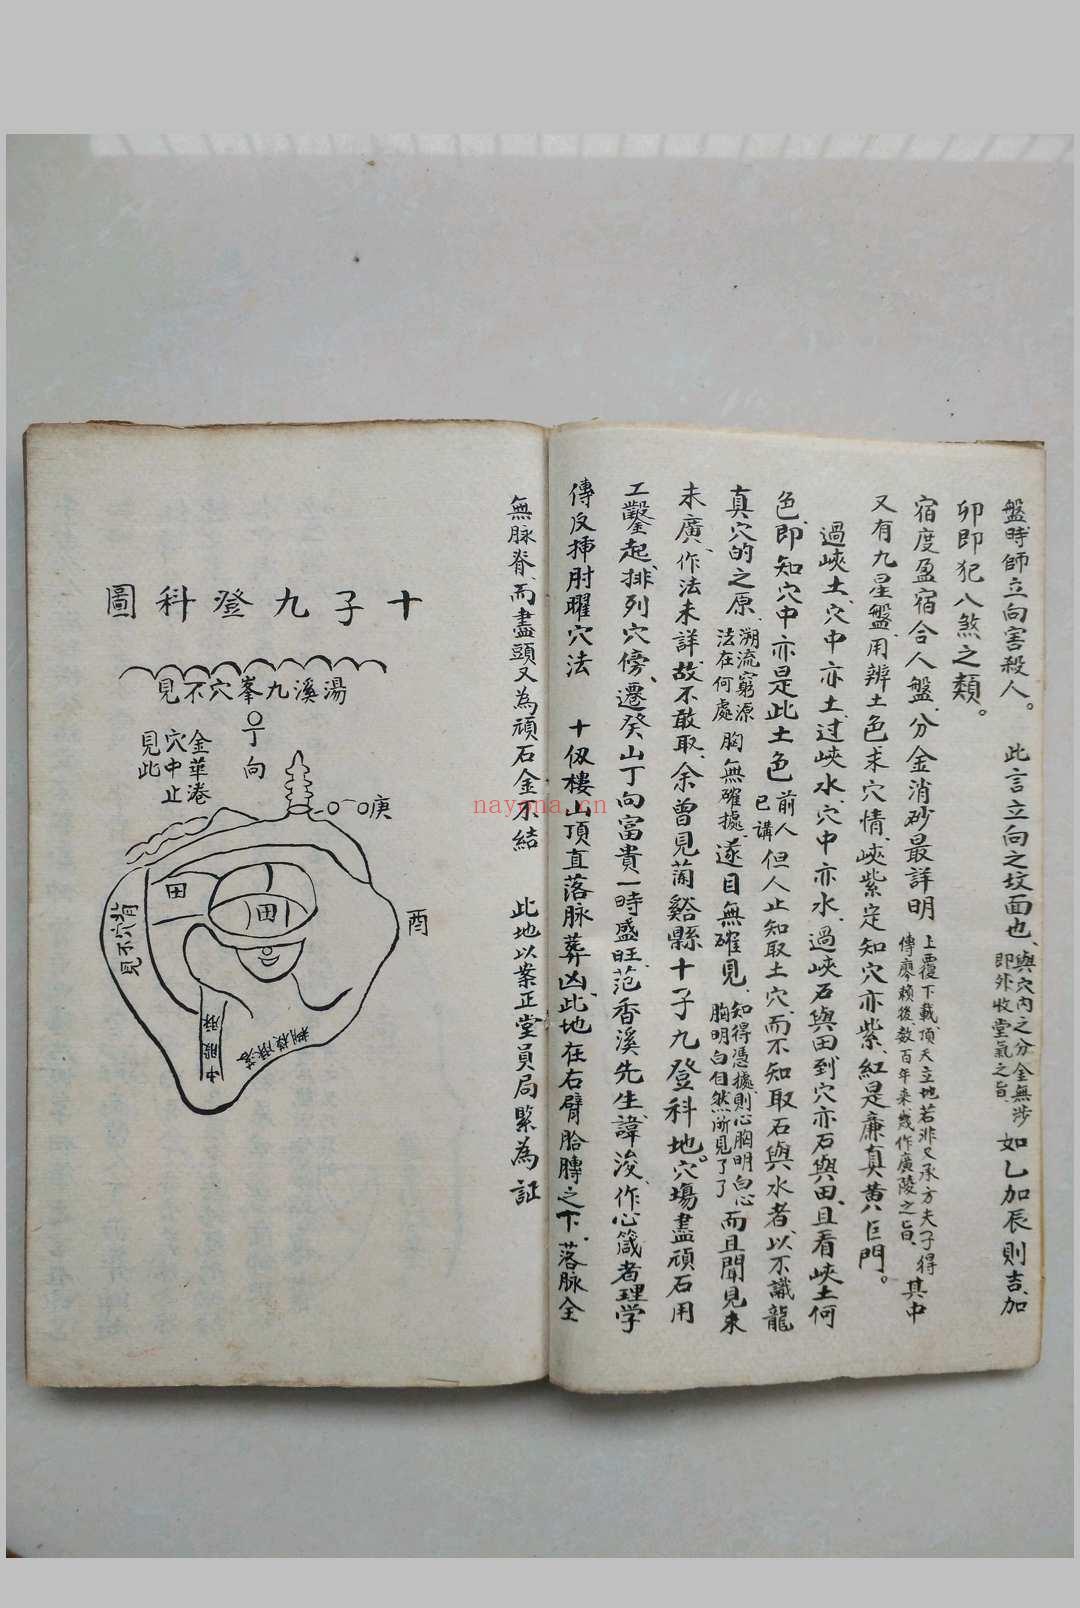 盤、時師立向害殺人。　此言立向之坟面也、與穴內之分金無涉即外收堂氣之旨、如乙加辰則吉、加
卯即犯八煞之類。
宿度盈宿合人盤、分金消砂最詳明　上覆下載、頂天立地、若非又承方夫子得傳廖賴後、數百年來、幾作廣陵之旨、其中
又有九星盤、用辨土色求穴情、峽紫定知穴亦紫、紅是廉貞黃巨門。
過峽土、穴中亦土、過峽水、穴中亦水、過峽石與田、到穴亦石與田、且看峽土何
色、即知穴中亦是此土色　前人已講　但人止知取土穴、而不知取石與水者、以不識龍
真穴的之原、溯流窮源法在何處　胸無確據、遂目無確見、知得憑據、則心胸明白、心胸明白、自然所見了了　而且聞見未
未廣、作法未詳、故不敢取、余曾見蘭谿縣十子九登科地。穴塲盡頑石、用
工鑿起、排列穴傍、遷癸山丁向、富貴一時盛旺、范香溪先生諱浚、作心箴者、理学
傳反挿肘曜穴法　十伋樓山頂直落脉葬凶、此地在右臂胎膊之下、落脉全
無脉脊、而盡頭又為頑石、金不結　此地以案正堂員局緊為証
十子九登科圖
湯溪九峯穴不見
丁向
金華港
穴中止
見此
庚
酉
背穴不見
田
田
中股
nayona.cn